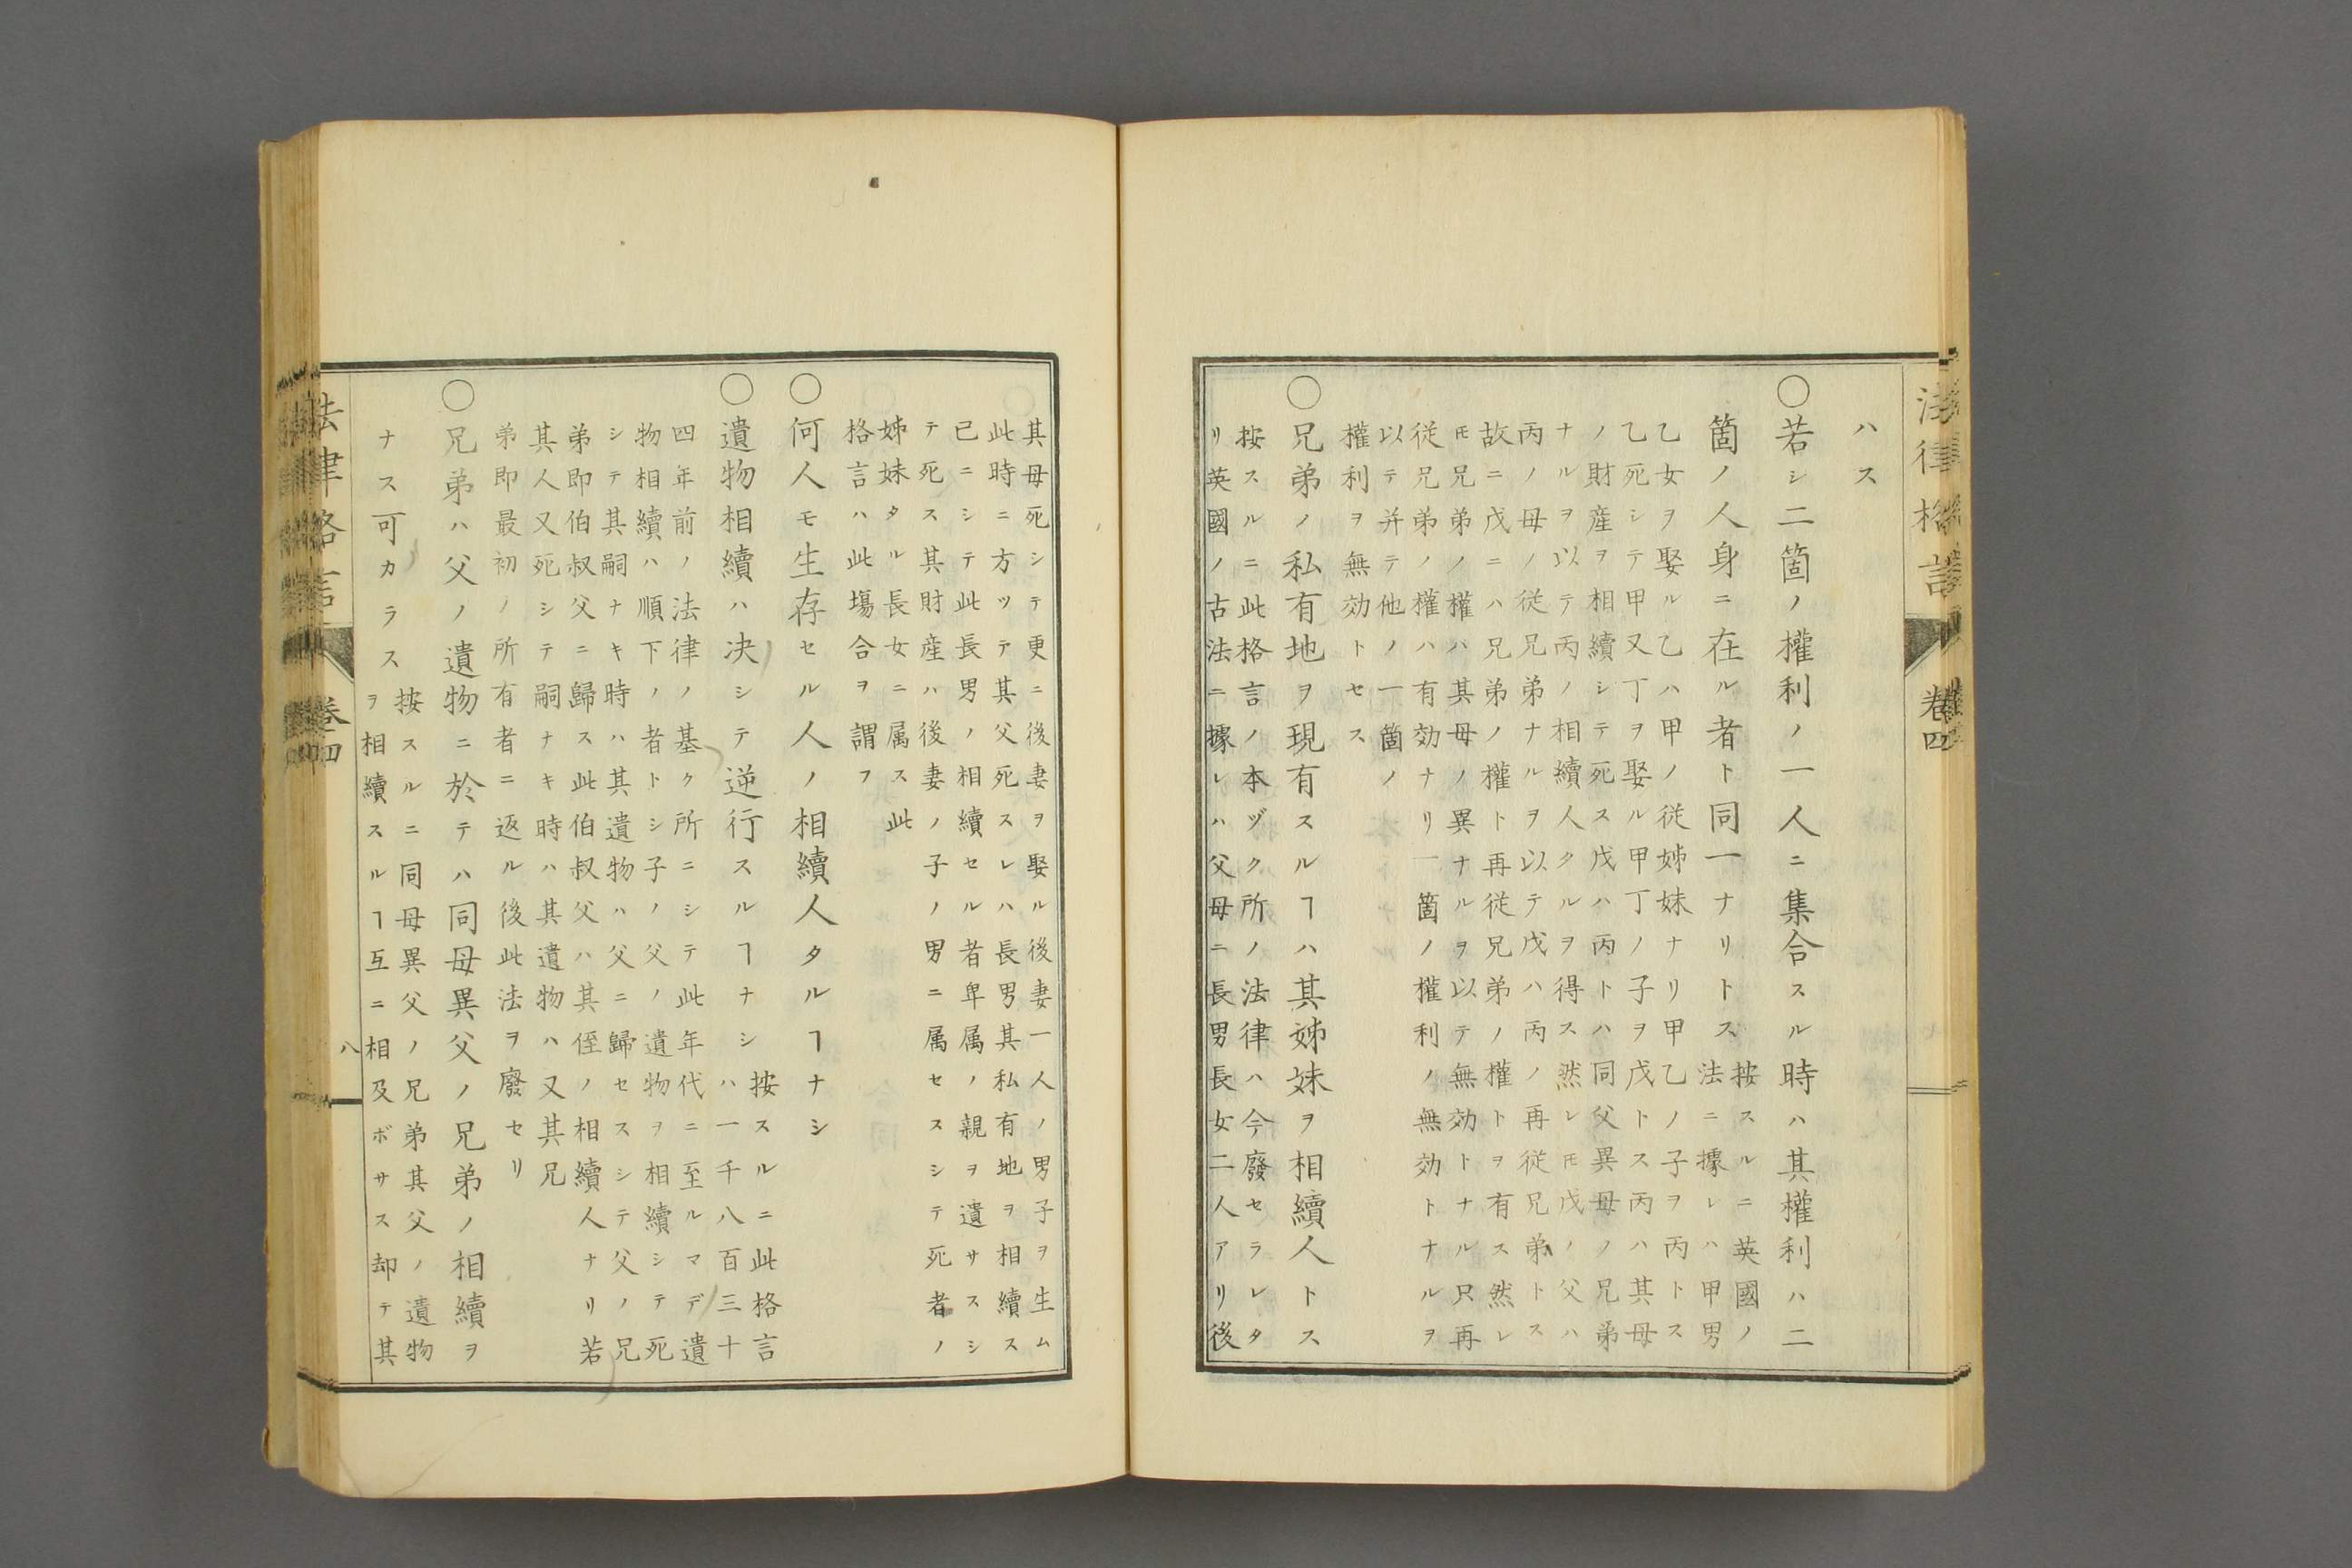 法律格言 卷四
ハス
○若シ二箇ノ權利ノ一人ニ集合スル時ハ其權利ハ二
箇ノ人身ニ在ル者ト同一ナリトス
按スルニ英國ノ
法ニ據レハ甲男
乙女ヲ娶ル乙ハ甲ノ従姊妹ナリ甲乙ノ子ヲ丙トス
乙死シテ甲又丁ヲ娶ル甲丁ノ子ヲ戊トス丙ハ其母
ノ財産ヲ相續シテ死ス戊ハ丙トハ同父異母ノ兄弟
ナルヲ以テ丙ノ相續人タルヲ得ス然レ𪜈戊ノ父ハ
丙ノ母ノ従兄弟ナルヲ以テ戊ハ丙ノ再従兄弟トス
故ニ戊ニハ兄弟ノ權ト再従兄弟ノ權トヲ有ス然レ
𪜈兄弟ノ權ハ其母ノ異ナルヲ以テ無効トナル只再
従兄弟ノ權ハ有効ナリ一箇ノ權利ノ無効トナルヲ
以テ并テ他ノ一箇ノ
權利ヲ無効トセス
○兄弟ノ私有地ヲ現有スルヿハ其姊妹ヲ相續人トス
按スルニ此格言ノ本ヅク所ノ法律ハ今廢セラレタ
リ英國ノ古法ニ據レハ父母ニ長男長女二人アリ後
其母死シテ更ニ後妻ヲ娶ル後妻一人ノ男子ヲ生ム
此時ニ方ツテ其父死スレハ長男其私有地ヲ相續ス
已ニシテ此長男ノ相續セル者卑属ノ親ヲ遺サスシ
テ死ス其財産ハ後妻ノ子ノ男ニ属セスシテ死者ノ
姊妹タル長女ニ属ス此
格言ハ此塲合ヲ謂フ
○何人モ生存セル人ノ相續人タルヿナシ
○遺物相續ハ決シテ逆行スルヿナシ
按スルニ此格言
ハ一千八百三十
四年前ノ法律ノ基ク所ニシテ此年代ニ至ルマデ遺
物相續ハ順下ノ者トシ子ノ父ノ遺物ヲ相續シテ死
シテ其嗣ナキ時ハ其遺物ハ父ニ歸セスシテ父ノ兄
弟即伯叔父ニ歸ス此伯叔父ハ其侄ノ相續人ナリ若
其人又死シテ嗣ナキ時ハ其遺物ハ又其兄
弟即最初ノ所有者ニ返ル後此法ヲ廢セリ
○兄弟ハ父ノ遺物ニ於テハ同母異父ノ兄弟ノ相續ヲ
ナス可カラス
按スルニ同母異父ノ兄弟其父ノ遺物
ヲ相續スルヿ互ニ相及ボサス却テ其
法律格言 卷四 八